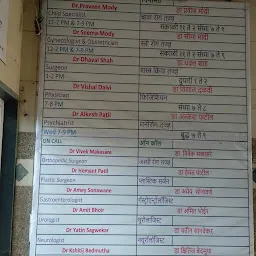 Dr.Praveen Mody
डा प्रवीन मोदी
Child Specialist
बाल रोग तज्ञ
12-2 PM & 7-8 PM
Dr Seema Mody
डा सीमा मोदी
Gynecologist & Obstetrician
स्त्री रोग तज्ञ
12-2 PM & 7-8 PM
Dr Dhaval Shah
डा धवल शाह
Surgeon
1-2 PM
Dr Vishal Dalvi
डा विशाल दळवी
Physician
फिजिशियन
7-8 PM
संध्या ७ ते ८
Dr Alkesh Patil
डा अल्केश पाटील
Psychiatrist
Wed 7-9 PM
बुद्ध ७ ते ९
ON CALL
ऑन कॉल
Dr Vivek Makasare
डा विवेक मकासरे
Orthopedic Surgeon
Dr Hemant Patil
डा हेमंत पाटील
Plastic Surgeon
प्लास्टिक सर्जन
Dr Amey Sonawane
डा अमेय सोनवणे
Gastroenterologist
गॅस्ट्रोएंट्रोलॉजिस्ट
Dr Amit Bhoir
डा अमित भोईर
Urologist
यूरोलॉजिस्ट
Dr Yatin Sagwekar
डा यतीन सागवेकर
Neurologist
न्यूरोलॉजिस्ट
Dr Kshitij Bedmutha
डा क्षितिज बेदमुथा